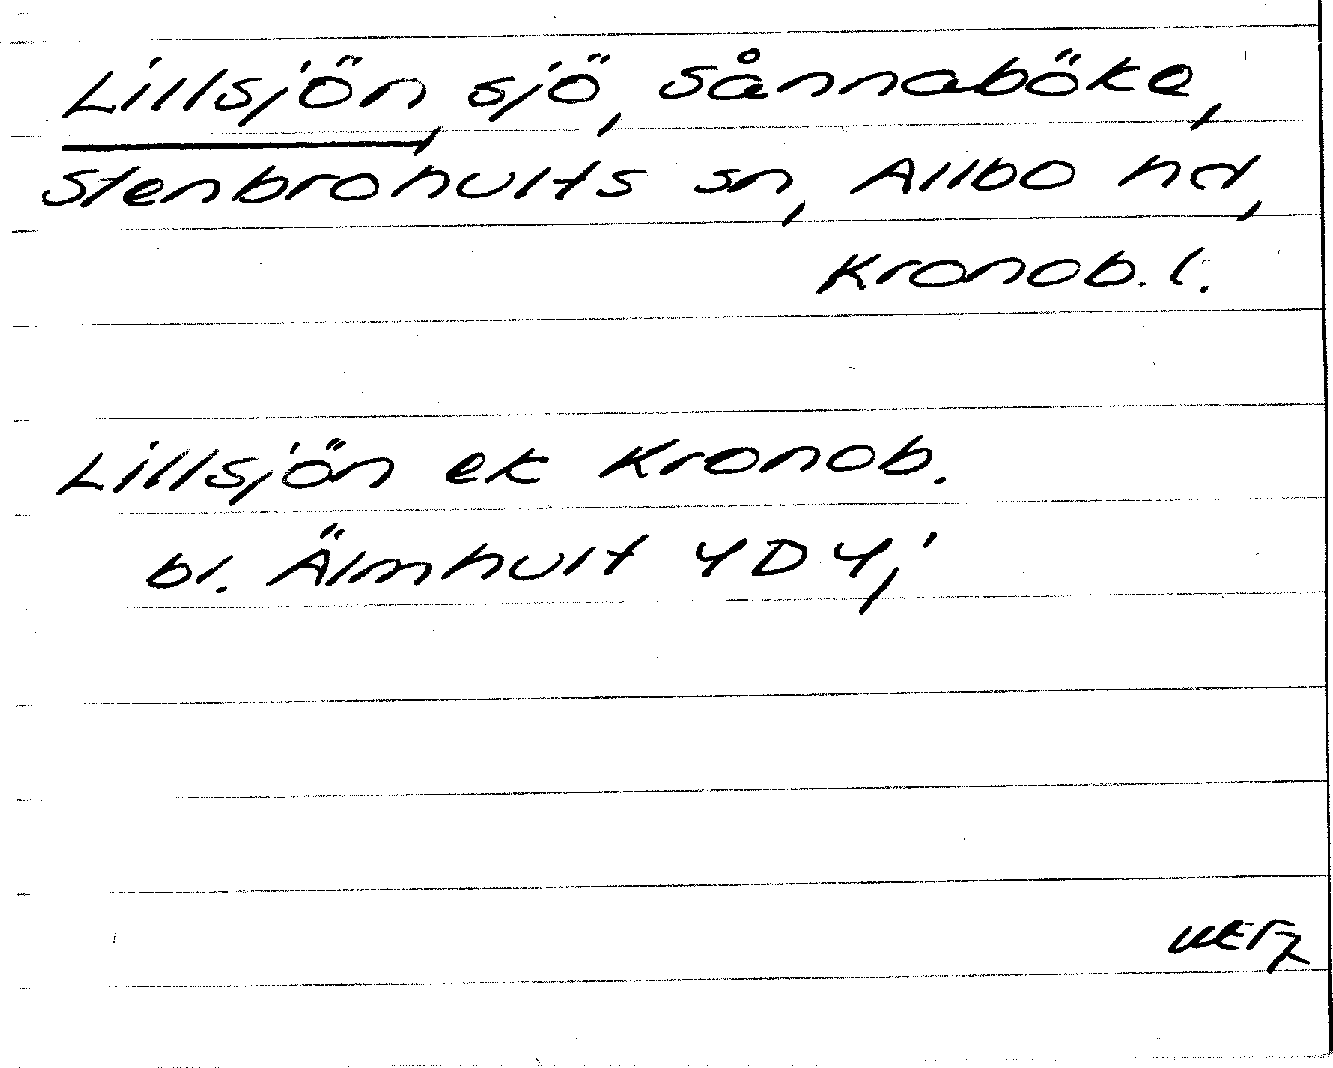 Lillsjön, sjö, Sånnaböke,
Stenbrohults sn, Allbo hd,
Kronob. l.
Lillsjön ek Kronob.
bl. Älmhult 4D 4j